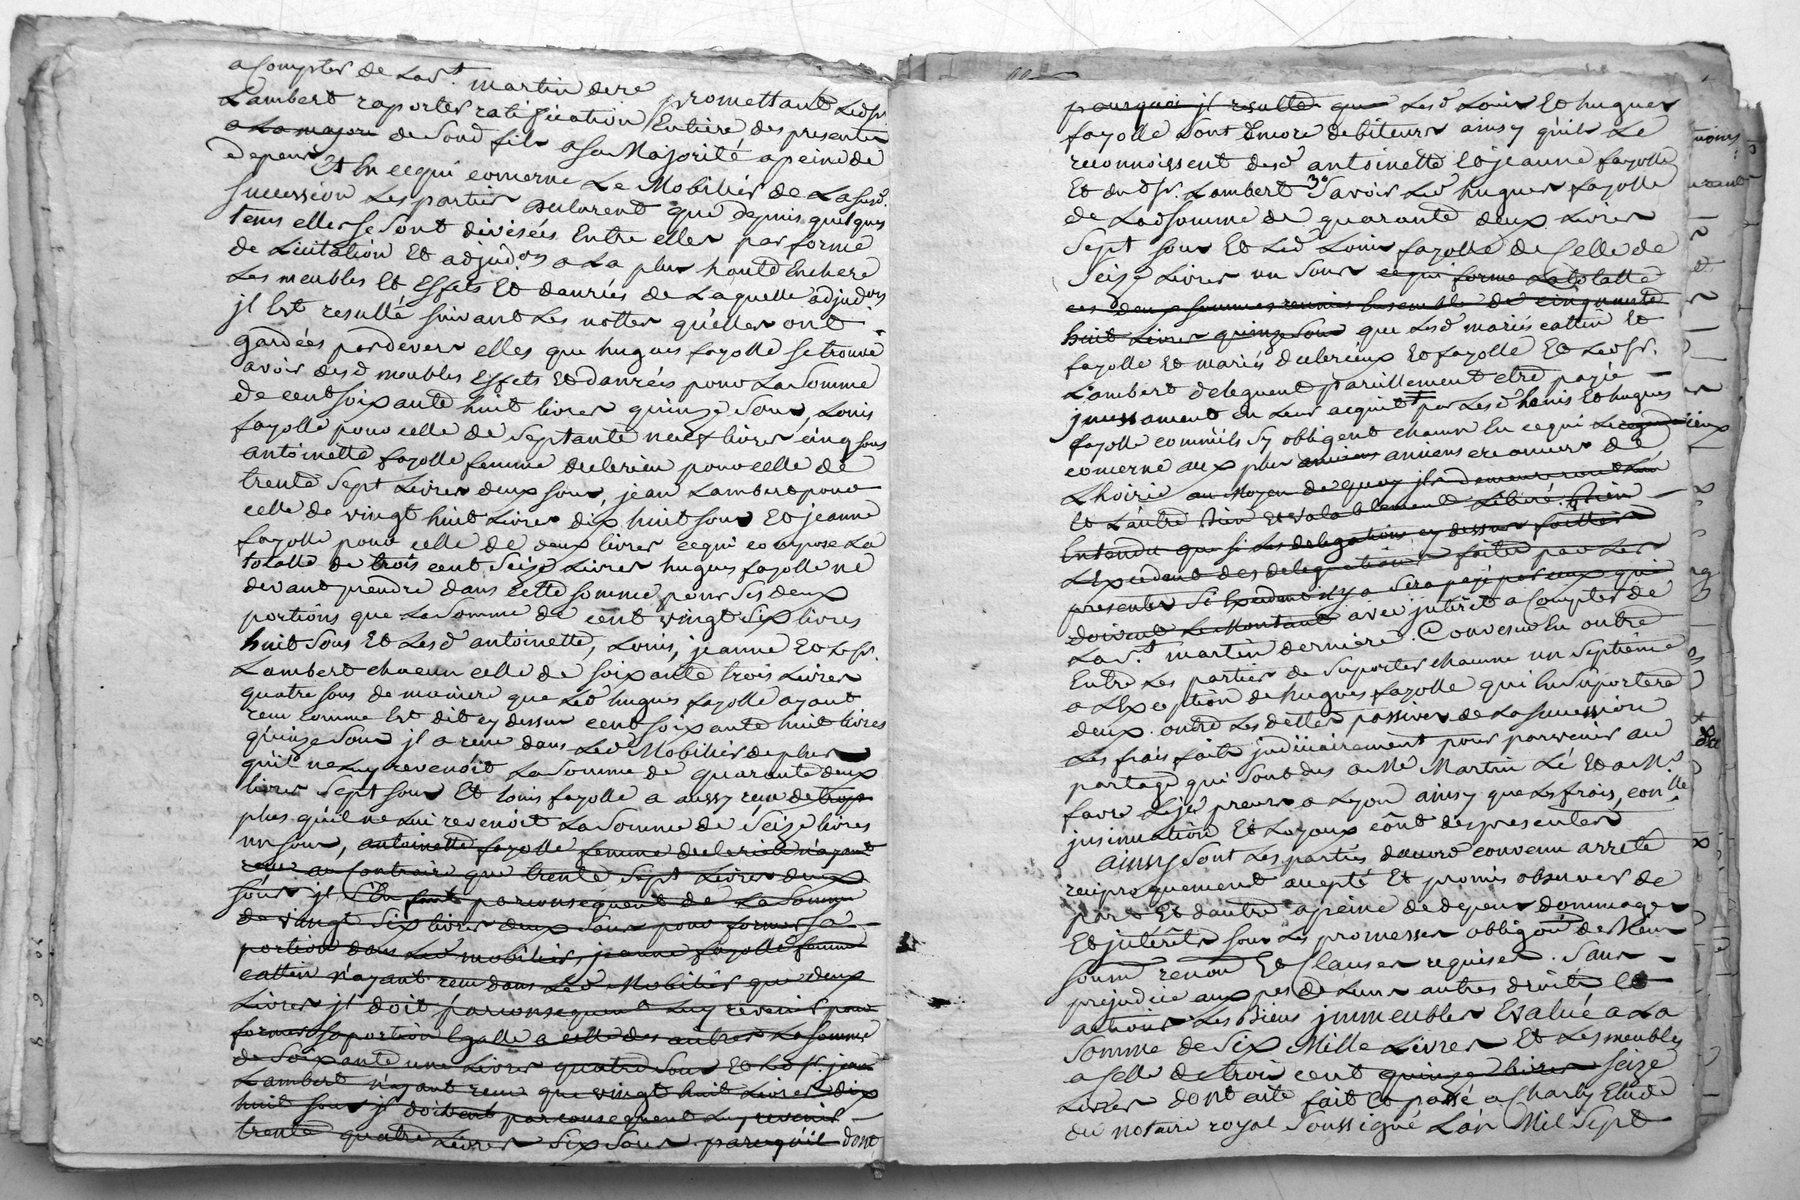 a Compter de la st. martin dere promettant Ledsr.
Lambert raporter ratification Entiere des presentes
a La majori de Sond fils a Sa Majorité a peine de
depens
Et En cequi concerne Le Mobilier de La susd.
succession Les parties Declarent que depuis quelques
tems elles se sont divisées Entre elles par forme
de Licitation Et adjudon a La plus haute Enchere
Les meubles Et Effets Et danrées de Laquelle adjudon
jl Est resulté suivant Les nottes qu'elles ont
gardées pardevers elles que hugues fayolle se trouve
avoir desd meubles Effets Et danrées pour La Somme
de cent soixante huit livres quinze sous, Louis
fayolle pour celle de septante neuf livres cinq sous
antoinette fayolle femme declerieu pour celle de
trente Sept Livres deux sous, jean Lambert pour
celle de vingt huit Livres dix huit sous Et jeanne
fayolle pour celle de deux livres cequi compose La
totalle de trois cent Seize Livres hugues fayolle ne
devant prendre dans cette somme pour ses deux
portions que La Somme de cent vingt Six livres
huit sous Et Lesd antoinette, Louis, jeanne Et Le sr.
Lambert chacun celle de soixante trois Livres
quatre sous de maniere que Led hugues fayolle ayant
reçu comme Est dit cy dessus cent soixante huit livres
quinze sous jl a reçu dans Led Mobilier de plus
qu'il ne Luy revenoit La Somme de quarante deux
livres sept sous Et Louis fayolle a aussy reçu de trop
plus qu'il ne Lui revenoit La Somme de Seize livres
un sous, antoinette fayolle femme declerieu n'ayant
reçu au Contraire que trente Sept Livres deux
sous jl parconsequent de La Somme
de vingt Six livres deux Sous pour former sa
portion dans Led mobilier, jeanne fayolle femme
cattin n'ayant reçu dans Led Mobilier que deux
Livres jl doit parconsequent Luy revenir pour
former sa portion Egalle a celle des autres La somme
de Soixante une Livres quatre Sous Et Led sr. jean
Lambert n'ayant reçu que vingt huit Livres dix
huit sous jl doit parconsequent Luy revenir
trente quatre Livres Six Sous parcequ'il dont
pourquoi jl resulte que Lesd Louis Et hugues
fayolle sont Encore debiteurs ainsy qu'ils Le
reconnoissent desd antoinette Et jeanne fayolle
Et dud sr. Lambert Savoir Led hugues fayolle
de Lad somme de quarante deux Livres
Sept sous Et Led Louis fayolle de Celle de
Seize Livres un Sous cequi forme La totalle
ces deux sommes reunies Ensemble de cinquante
huit Livres quinze sous que Lesd mariés cattin Et
fayolle Et mariés declerieux Et fayolle Et Led sr.
Lambert deleguent pareillement etre payée
jncessament En Leur acquit par Lesd Louis Et hugues
fayolle comm'ils s'y obligent chacun En cequi Le
concerne aux plus anciens creanciers de
Lhoirie au Moyen de quoy jls demeureront L'un
Et L'autre Bien Et valablement Liberé. Bien
Entendu que si Les delegations cy dessus
L'Excedent des delegations faites par Les
presentes Si Excedent il y a sera payé par ceux qui
doivent Le Montant avec jnteret a Compter de
La st. martin derniere. Convenu En outre
Entre Les parties de Suporter chacune un Septième
a L'Exception de hugues fayolle qui En Suportera
deux. outre Les dettes passives de La succession
Les frais faits judiciairement pour parvenir au
partage qui sont dus a Me Martin Et a Mr.
favre a Lyon ainsy que Les frais, con lle
jnsinuation Et Loyaux coûts des presentes
ainsy sont Les parties d'accord convenu arreté
reciproquement accepté Et promis observer de
part Et dautre a peine de depens dommages
Et jnterêts sous Les promesses obligon de Biens
soum renon Et Clauses requises. Sans
prejudice aux parties de Leurs autres droits Et
actions Les Biens jmmeubles Evalué a La
Somme de Six Mille Livres Et Les meubles
a Celle de trois cent quinze livres seize
Livres dont acte fait Et passé a Charly Etude
du notaire royal Soussigné L'an Mil Sept